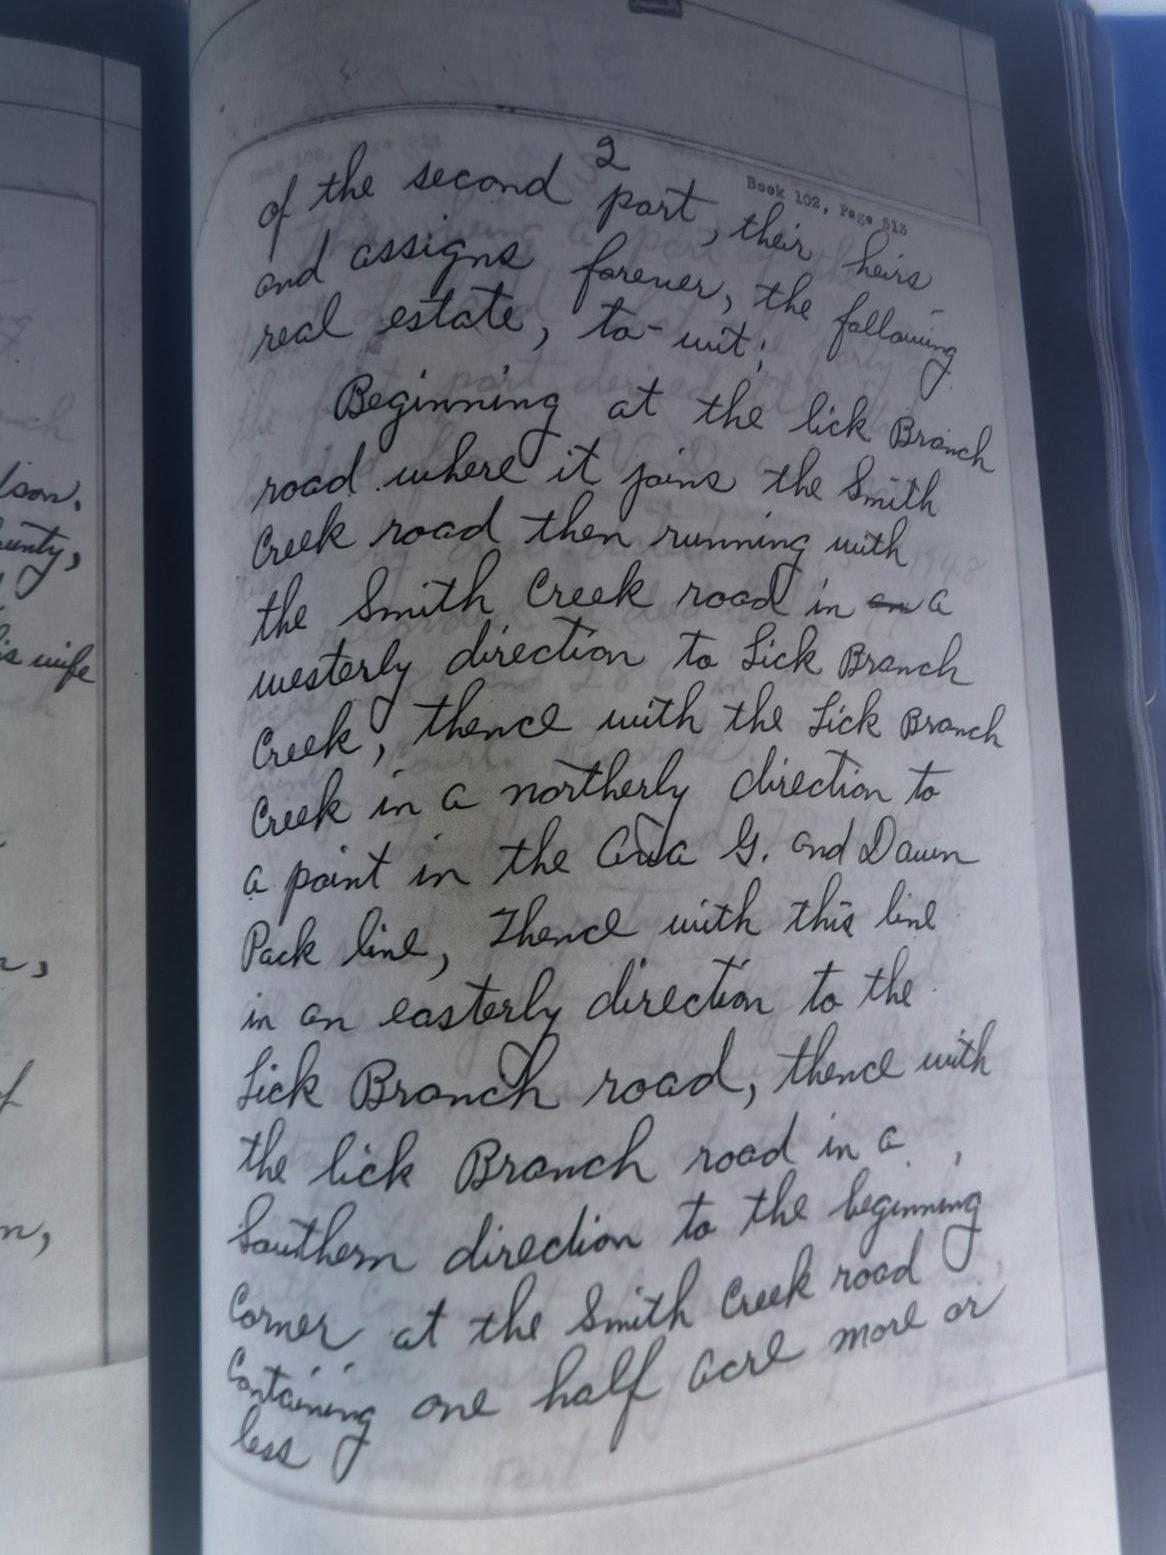 2
Book 102, Page 513
of the second part, their heirs
and assigns forever, the following
real estate, to-wit;
Beginning at the lick Branch
road where it joins the Smith
Creek road then running with
the Smith Creek road in an a
westerly direction to Lick Branch
Creek, thence with the Lick Branch
Creek in a northerly direction to
a point in the G. and Dawn
Pack line, Thence with this line
in an easterly direction to the
Lick Branch road, thence with
the lick Branch road in a
Southern direction to the beginning
Corner at the Smith Creek road
Containing one half acre more or
less
is wife